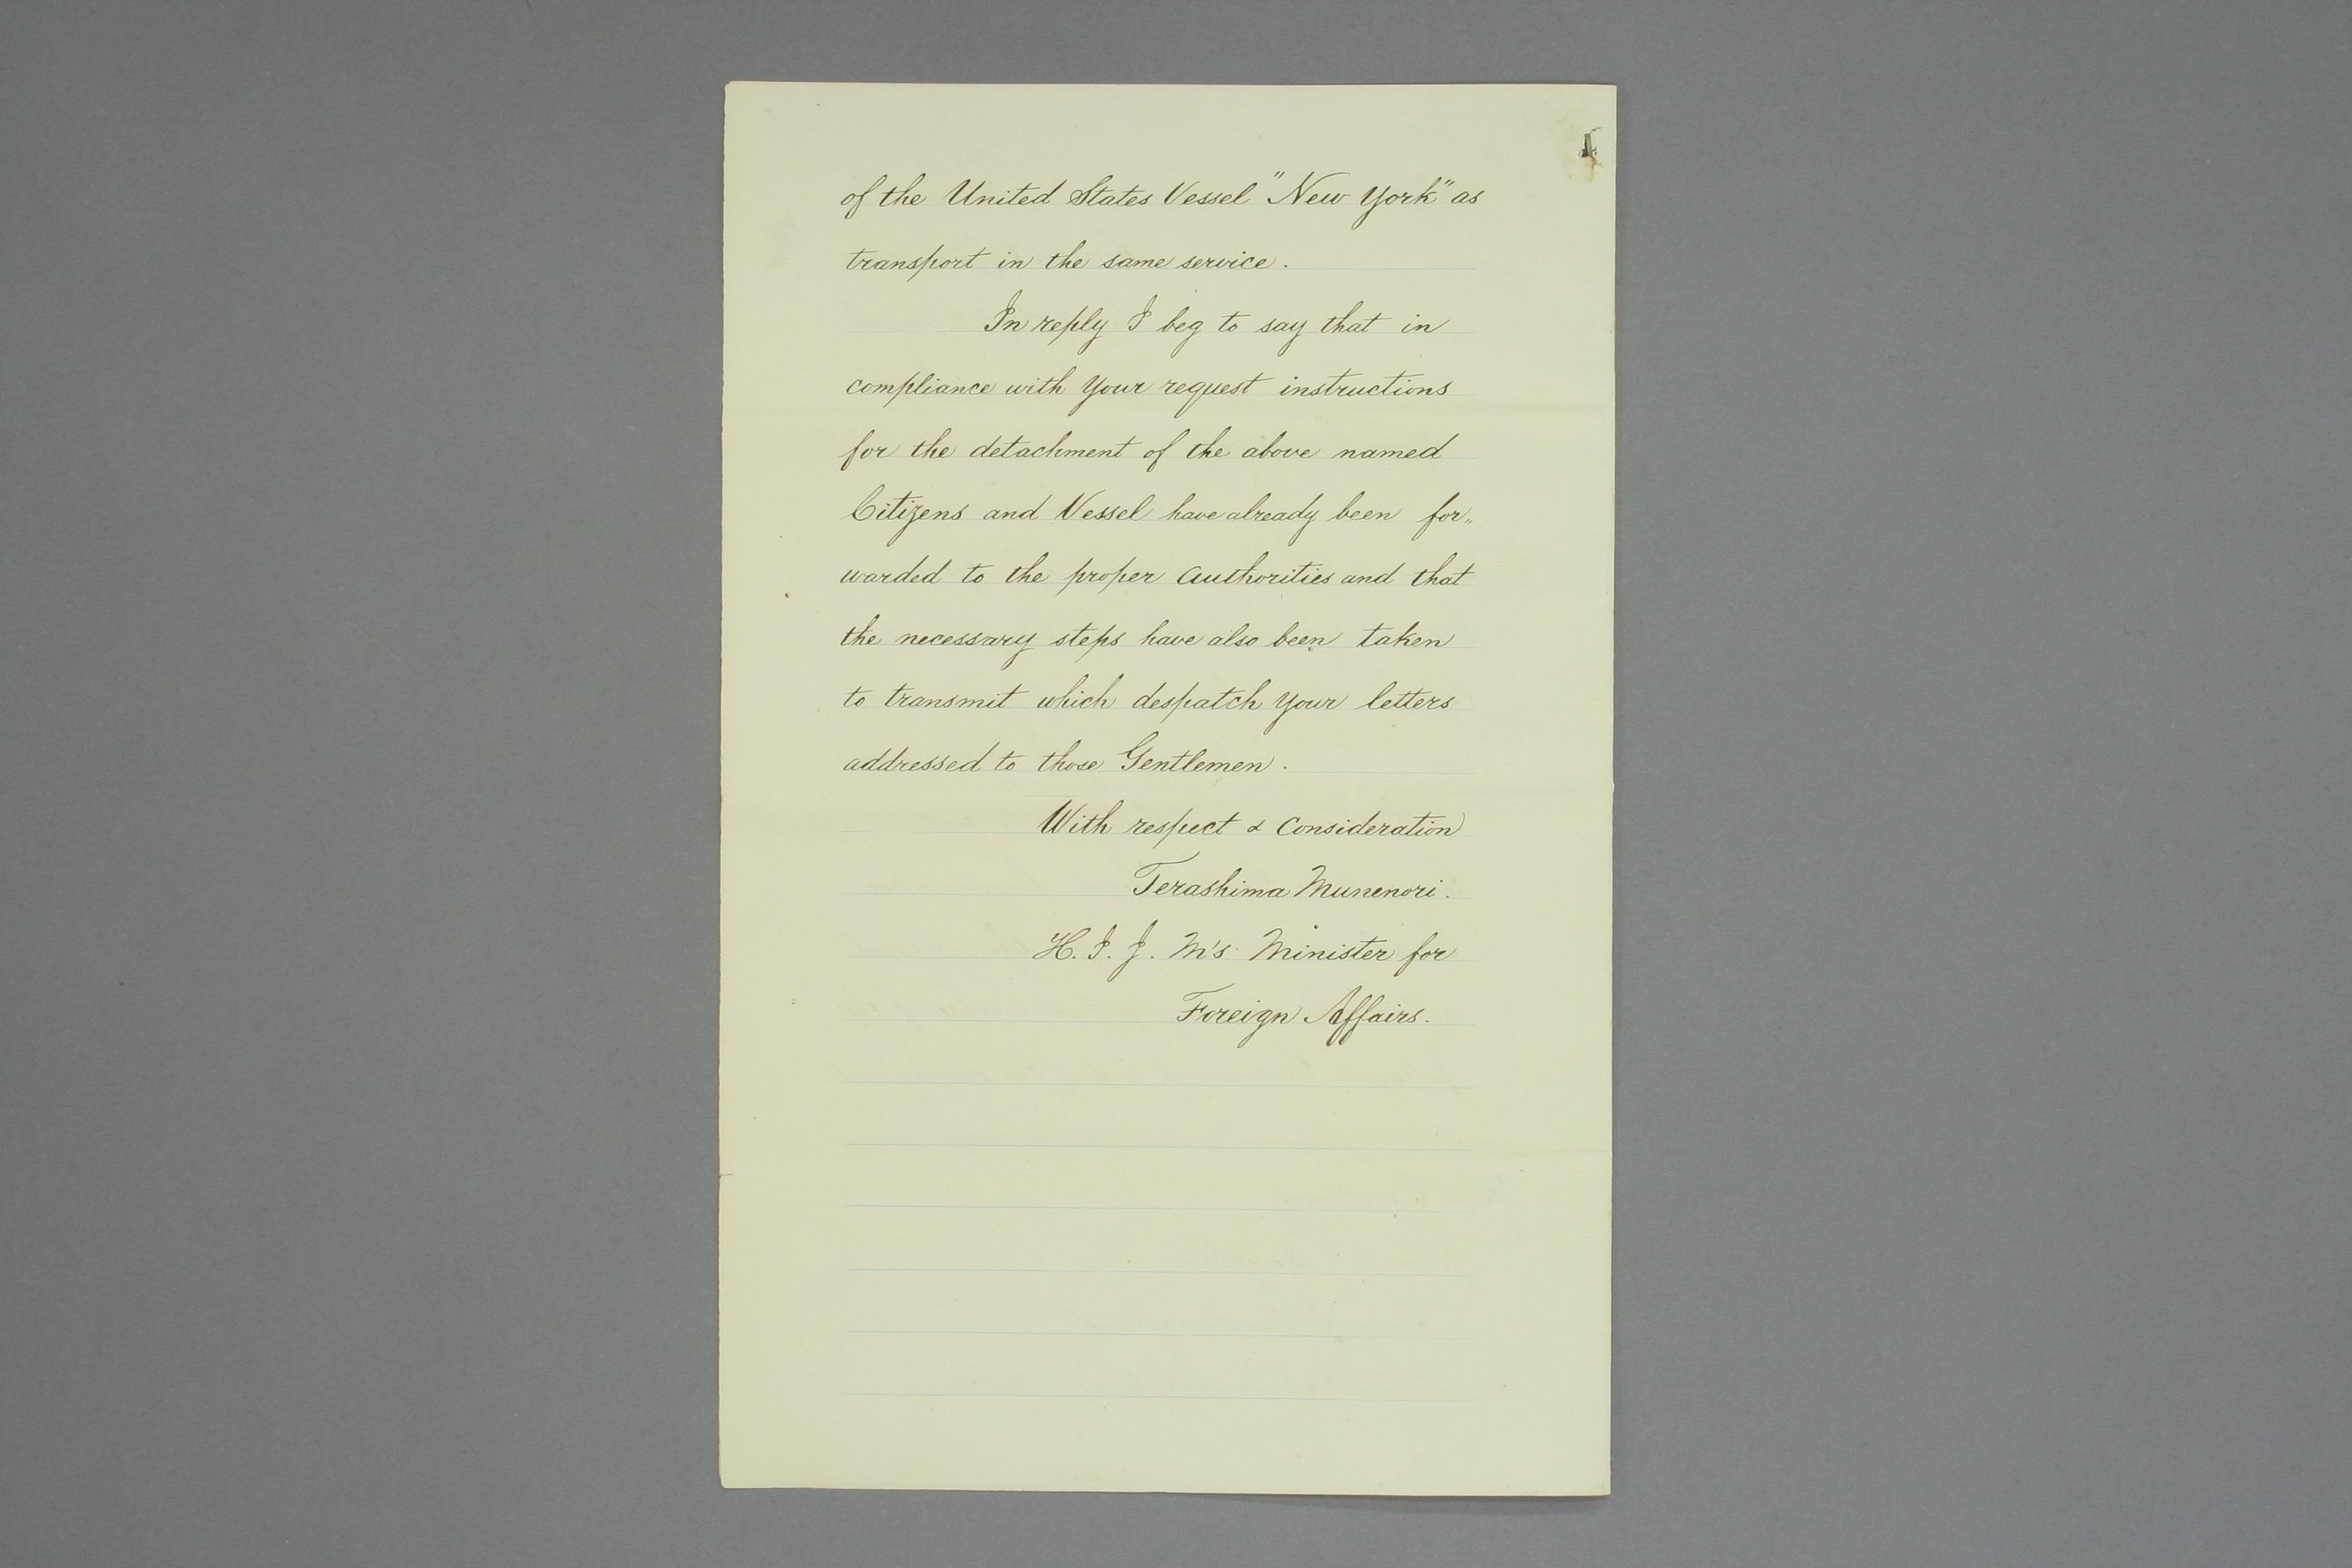 of the United States Vessel "New York" as
transport in the same service.
In reply I beg to say that in
compliance with your request instructions
for the detachment of the above named
Citizens and Vessel have already been for„
warded to the proper authorities and that
the necessary steps have also been taken
to transmit which despatch your letters
addressed to those Gentlemen.
With respect & Consideration
Terashima Munenori.
H. I. J. M's Minister for
Foreign Affairs.